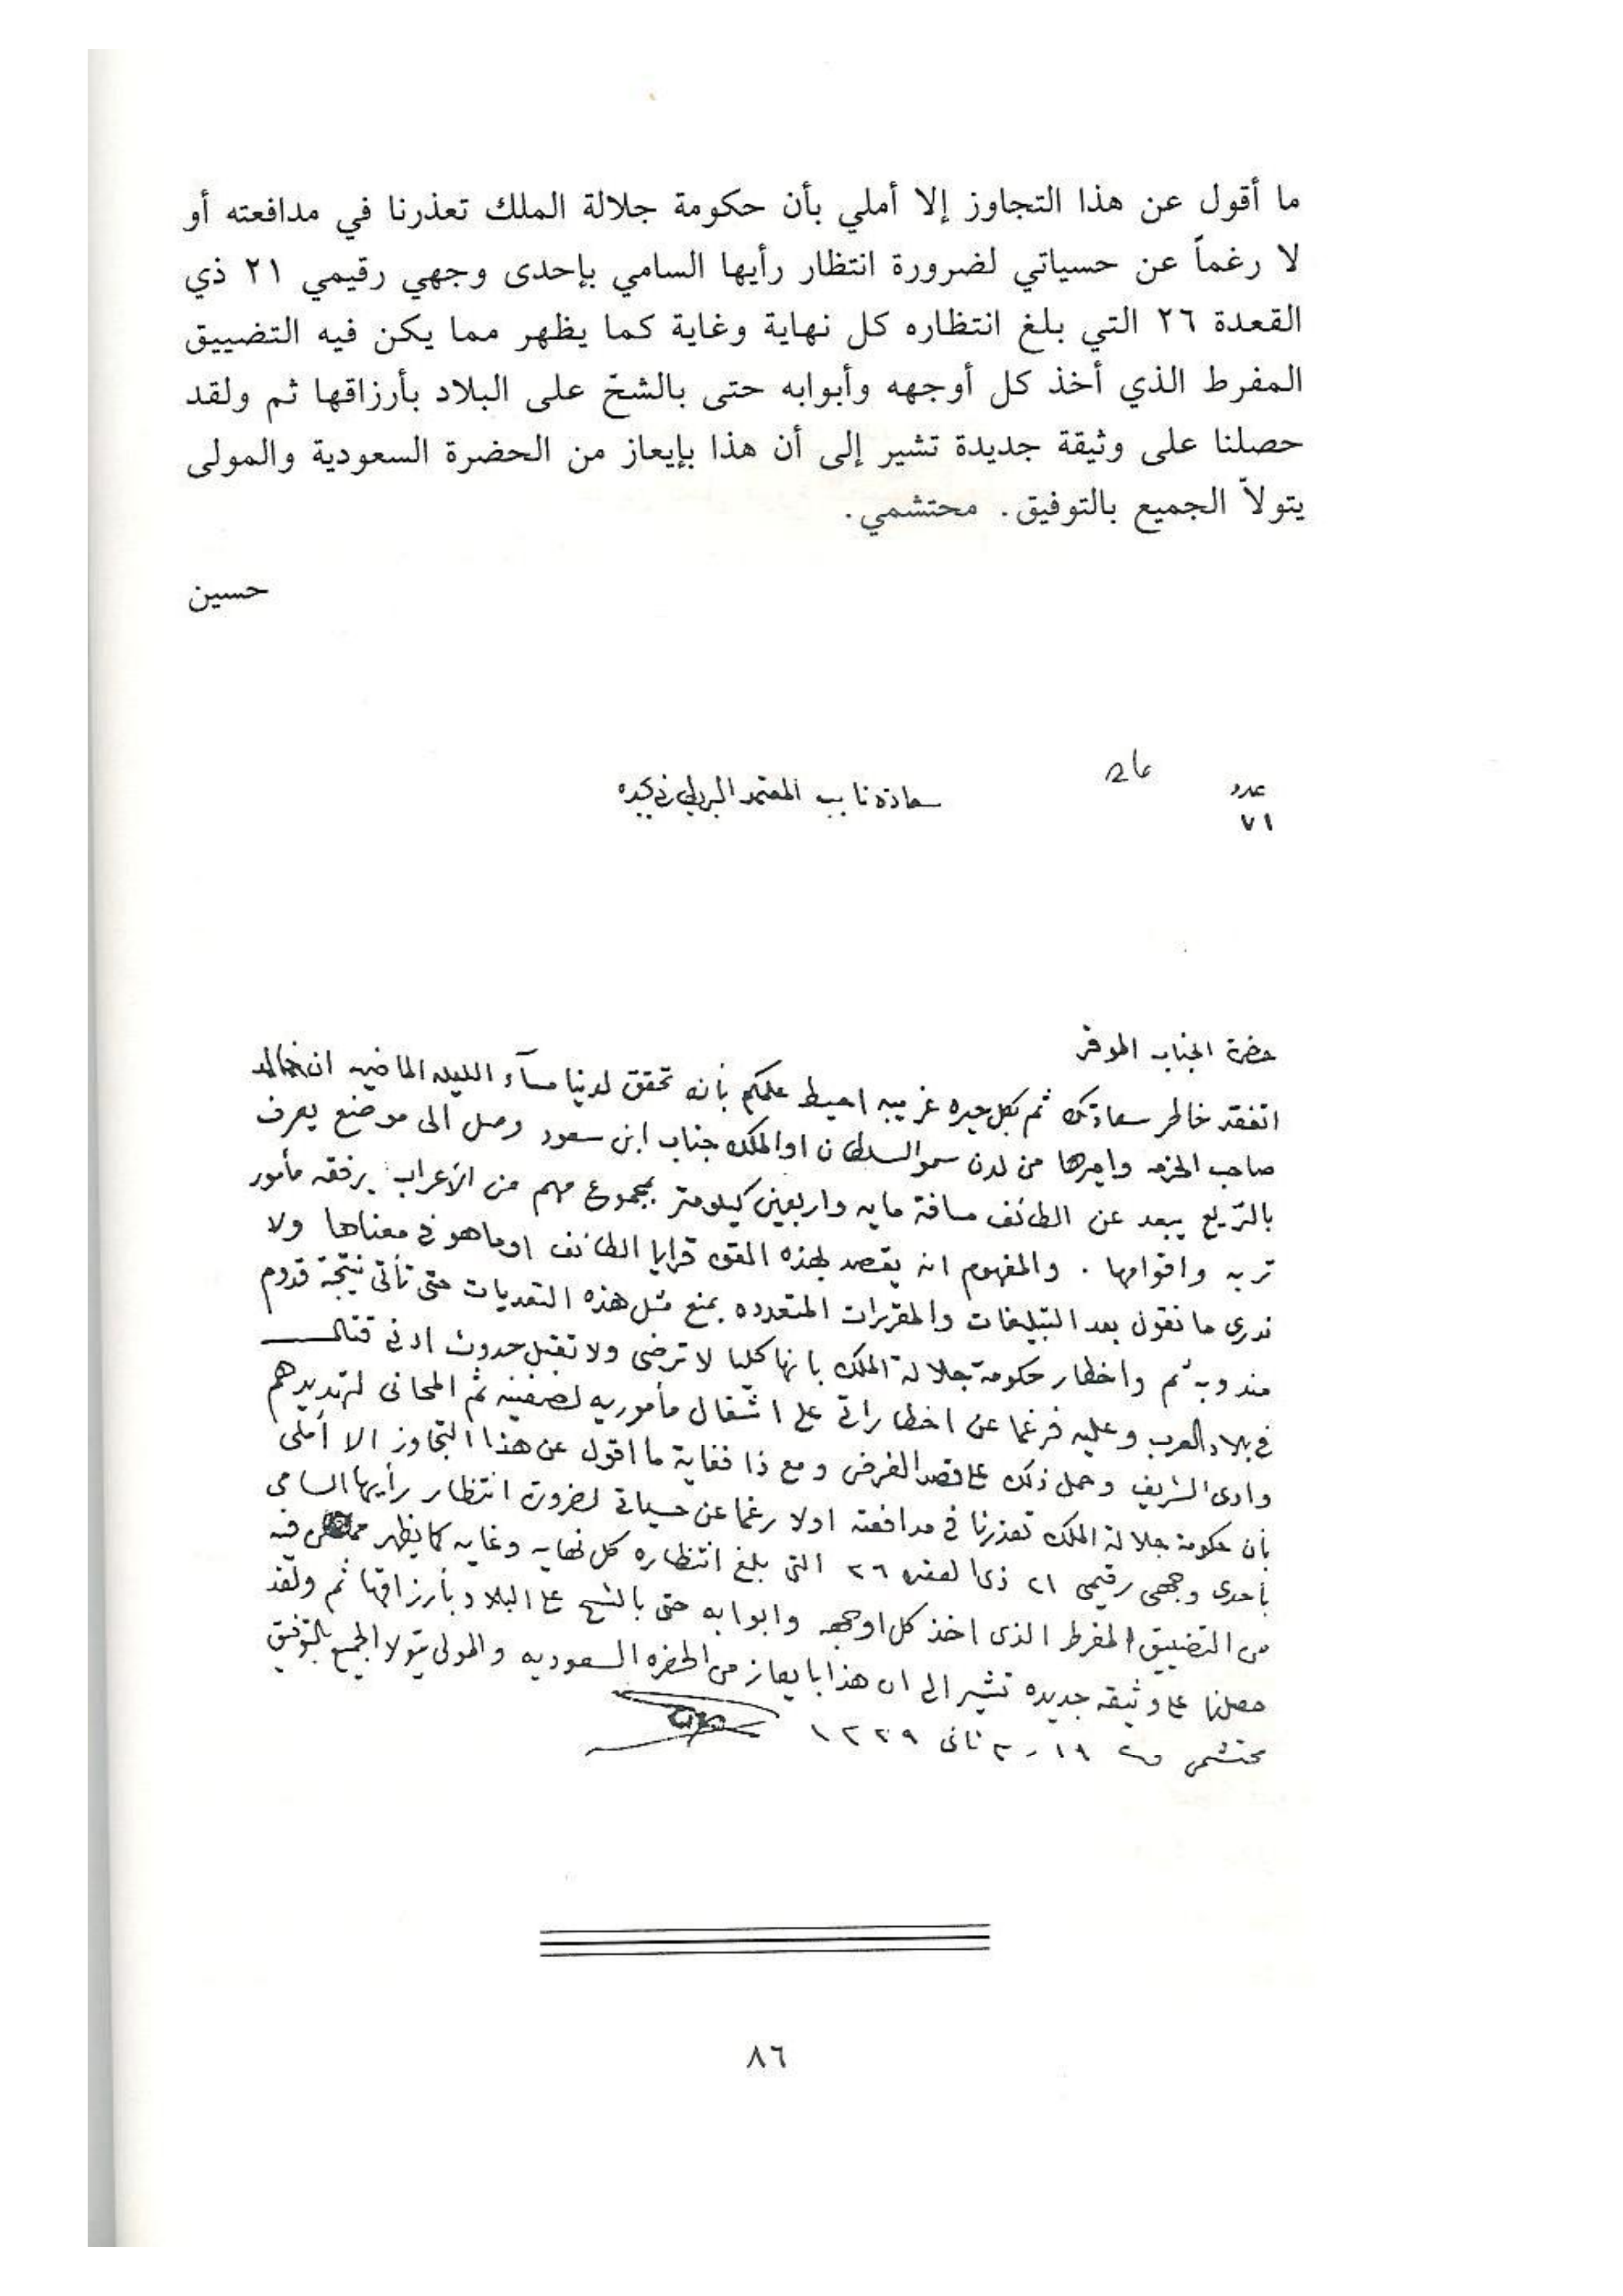 ما أقول عن هذا التجاوز إلا أملي بأن حكومة جلالة الملك تعذرنا في مدافعته أو
لا رغماً عن حسياتي لضرورة انتظار رأيها السامي بإحدى وجهي رقيمي ٢١ ذي
القعدة ٢٦ التي بلغ انتظاره كل نهاية وغاية كما يظهر مما يكن فيه التضييق
المفرط الذي أخذ كل أوجهه وأبوابه حتى بالشحّ على البلاد بأرزاقها ثم ولقد
حصلنا على وثيقة جديدة تشير إلى أن هذا بإيعاز من الحضرة السعودية والمولى
يتولاّ الجميع بالتوفيق. محتشمي.
حسين
عدد
٧١
سعادة نايب المعتمد البريطاني بجده
حضرة الجناب الموقر
اتفقد خاطر سعادتك ثم بكل حيره غريبه احيط علمكم بأن تحقق لدينا مسآء الليله الماضيه ان خالد
صاحب الخرمه واميرها من لدن سمو السلطان او الملك جناب ابن سعود وصل الى موضع يعرف
يبعد عن الطائف مسافة مايه واربعين كيلومتر بمجموع مهم من الأعراب يرفقه مأمور
تربه واقوامها . والمفهوم انه يقصد بهذه القوه قرايا الطائف اوما هو فى معناها ولا
ندرى ما نقول بعد التبليغات والمقررات المتعدده بمنع مثل هذه التعديات حتى تأتى نتيجة قدوم
مندوبه ثم واخطار حكومة جلالة الملك بانها كليا لا ترضى ولا تقبل حدوث ادنى قتال
فى بلاد العرب وعليه فرغما عن اخطاراتى على اشغال مأموريه ثم المحانى لتهديدهم
وادى الشريف وحمل ذلك على قصد الغرض ومع ذا فغاية ما اقول عن هذا التجاوز الا أملى
بأن حكومة جلالة الملك تعذرنا فى مدافعته اولا رغما عن حسياتى لضرورة انتظار رأيها السامى
بأحدى وجهى رقيمى ٢١ ذى القعده ٢٦ التى بلغ انتظاره كل نهايه وغايه كما يظهر فيه
من التضييق المفرط الذى اخذ كل اوجهه وابوابه حتى بالشح على البلاد بأرزاقها ثم ولقد
حصلنا على وثيقه جديده تشير الى ان هذا بايعاز من الحضره السعوديه والمولى يتولا الجميع بالتوفيق
محتشمى
٨٦